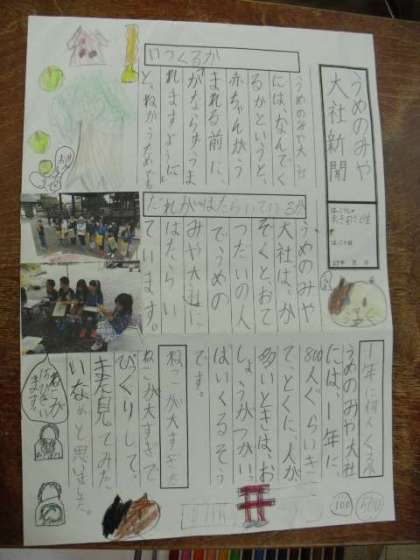 うめのみや
大社新聞
いつくるか
うめのみや大社
には、なんでく
るかというと、
赤ちゃんがう
まれる前に、
れますように
と、ねがうためです
だれがはたらいているか
うめのみや
大社は、か
ぞくと、おて
つだいの人
で、うめの
みや大社に
はたらい
ています。
1年に何人くるか
うめのみや大社
には、1年に、
800人ぐらいき
て、とくに、人が、
多いときは、お
しょうがつがい
ばいくるそう
です。
ねこが大すぎた
ねこが大すぎで
びっくりして、
また見てみた
いなぁと思いました。
ねこが
100